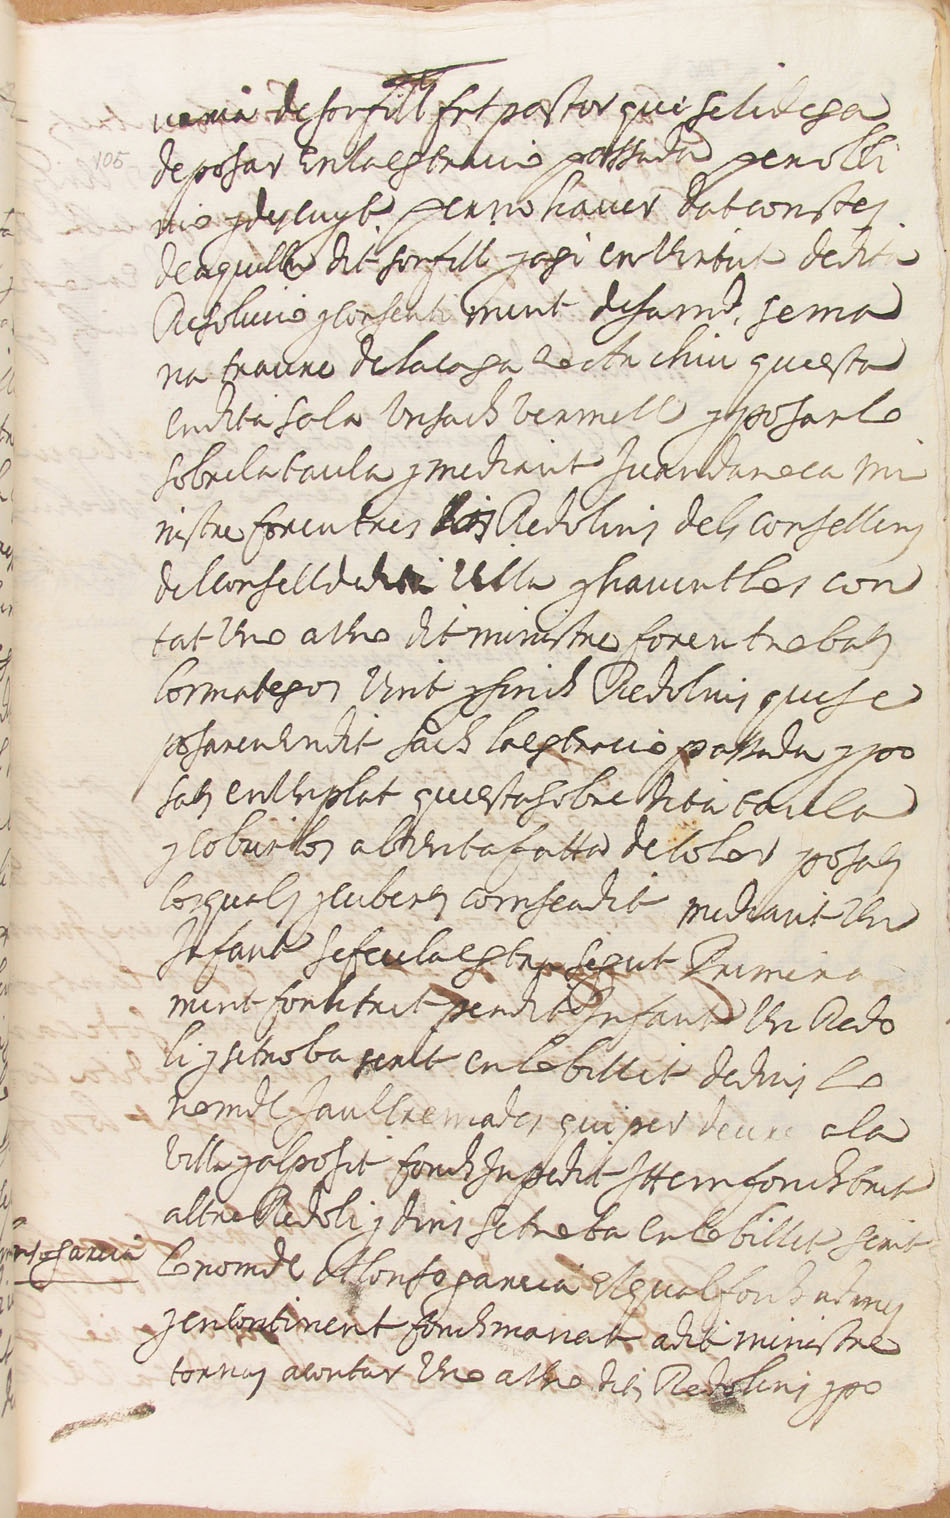 venia de son fill fet pastor que se li dega
105
de posar en la estracio passada per obli
nio y descuyt per no haver dat consta
de aquell dit son fill y axi en virtut de dita
Resolucio y consentiment de sa md. se ma
na traure de la caxa e o archiu que esta
en dita sala un sach vermell y posar le
sobre la taula y mediant Juan daneca mi
nistre foren trets los Redolins dels consellers
del consell de dita Villa y haventles con
tat Uno a Uno dit ministre foren trobats
los matexos Vint y sinch Redolins que se
posaren en dit sach la estracio passada y po
sats en Un plat que esta sobre dita taula
y cobrir los ab Un tafatta de color y posats
los quals y cuberts com se a dit mediant Un
Infant se feu la estrao seguent Primera
ment fonch tret per dit Infant Un Redo
li y se troba scrit en lo billet de dins lo
nom de Jaulbremades qui per deure a la
Villa y al posit fonch Inpedit Ittem fonch tret
altre Redoli y dins se troba en lo billet scrit
nso garcia
lo nom de Allonso garcia el qual fonch admes
y encontinent fonch manat a dit ministre
tornas a contar Uno a Uno dits Redolins y po